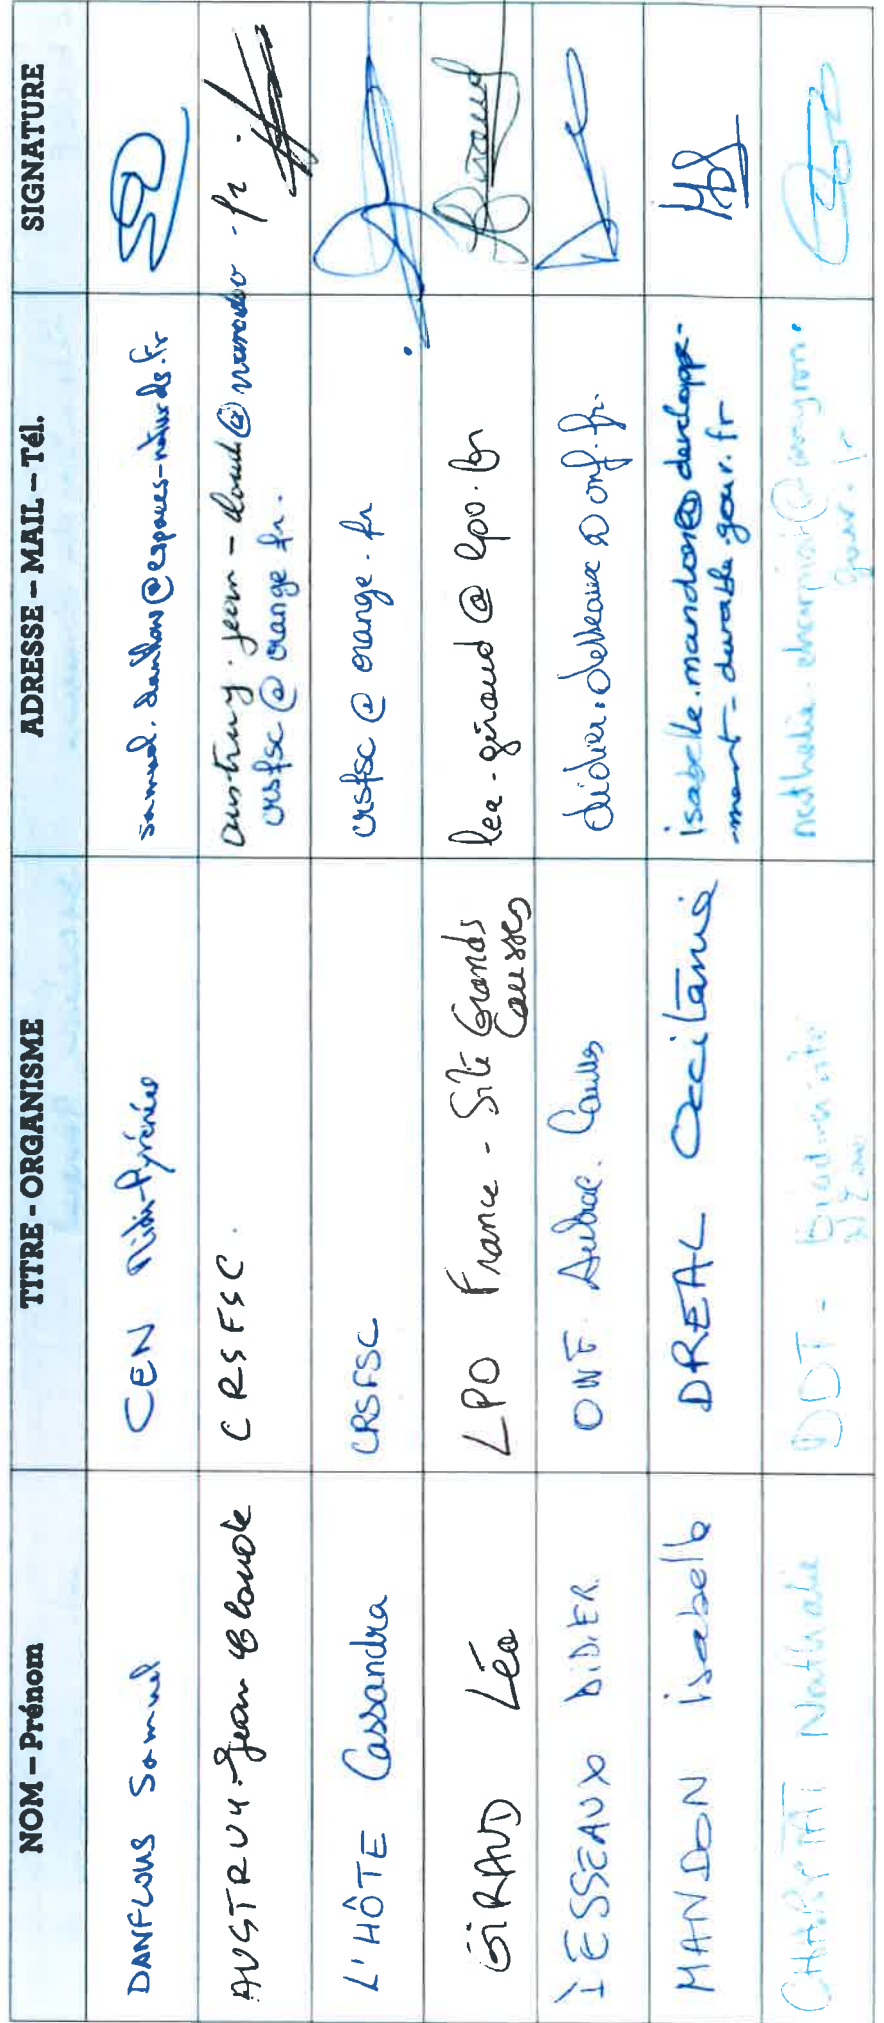 NOM – Prénom TITRE - ORGANISME ADRESSE – MAIL – Tél. SIGNATURE
DANFLOUS Samuel CEN Midi-Pyrénées samuel.danflous@espaces-naturels.fr
AUSTRUY-Jean Claude CRSFSC. austruy.jean-claude@wanadoo.fr.
crsfsc@orange.fr.
L'HÔTE Cassandra CRSFSC crsfsc@orange.fr
GIRAUD Léa LPO France - Site Grands
Causses lea.giraud@lpo.fr Giraud
DIDIER ONF Aubrac.
MANDON Isabelle DREAL Occitanie isabelle.mandon@developpe-
-ment-durable.gouv.fr
Nathalie DDT - Biodiversité
gouv.fr